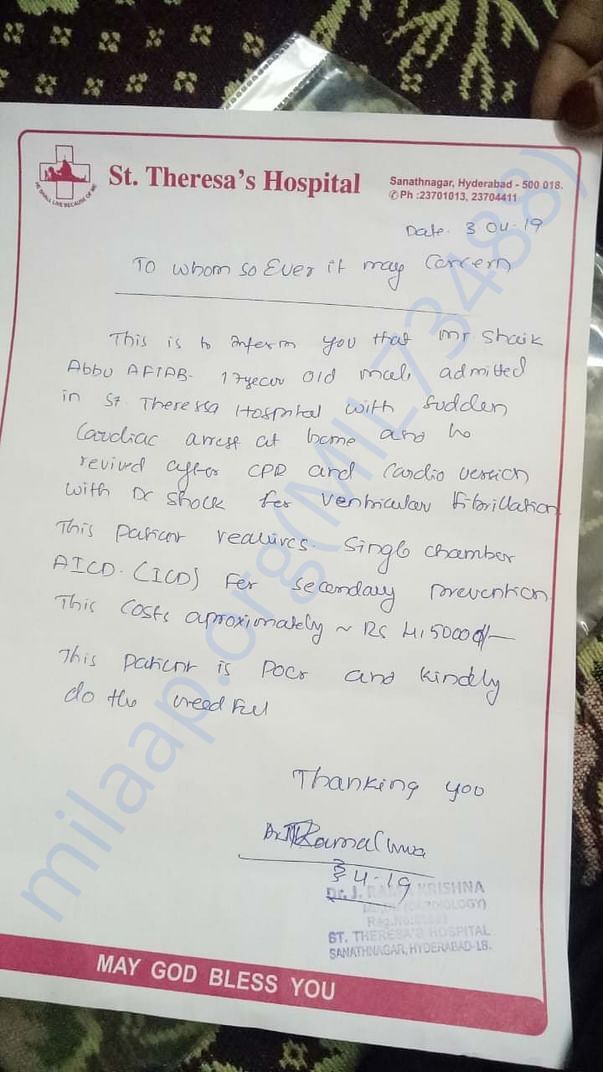 HE SHALL LIVE BECAUSE OF ME
St. Theresa's Hospital
Sanathnagar, Hyderabad - 500 018.
✆ Ph :23701013, 23704411
Date. 3 04-19
To whom so Ever it may Concern
This is to inform you that Mr Shaik
Abbu AFTAB- 17year old male admitted
in St. Theressa Hospital with Sudden
Cardiac arrest at home and he
revived after CPR and Cardio version
with DC Shock for Ventricular Fibrillation
This patient requires. Single chamber
AICD. (ICD) For Secondary prevention.
This Costs aproximately ~ Rs
This patient is Poor and kindly
do the need ful
Thanking you
Dr
3 4-19
Dr. J. KRISHNA
ST. THERESA'S HOSPITAL
SANATHNAGAR, HYDERABAD-18.
MAY GOD BLESS YOU
milaap.org(MIL73488)